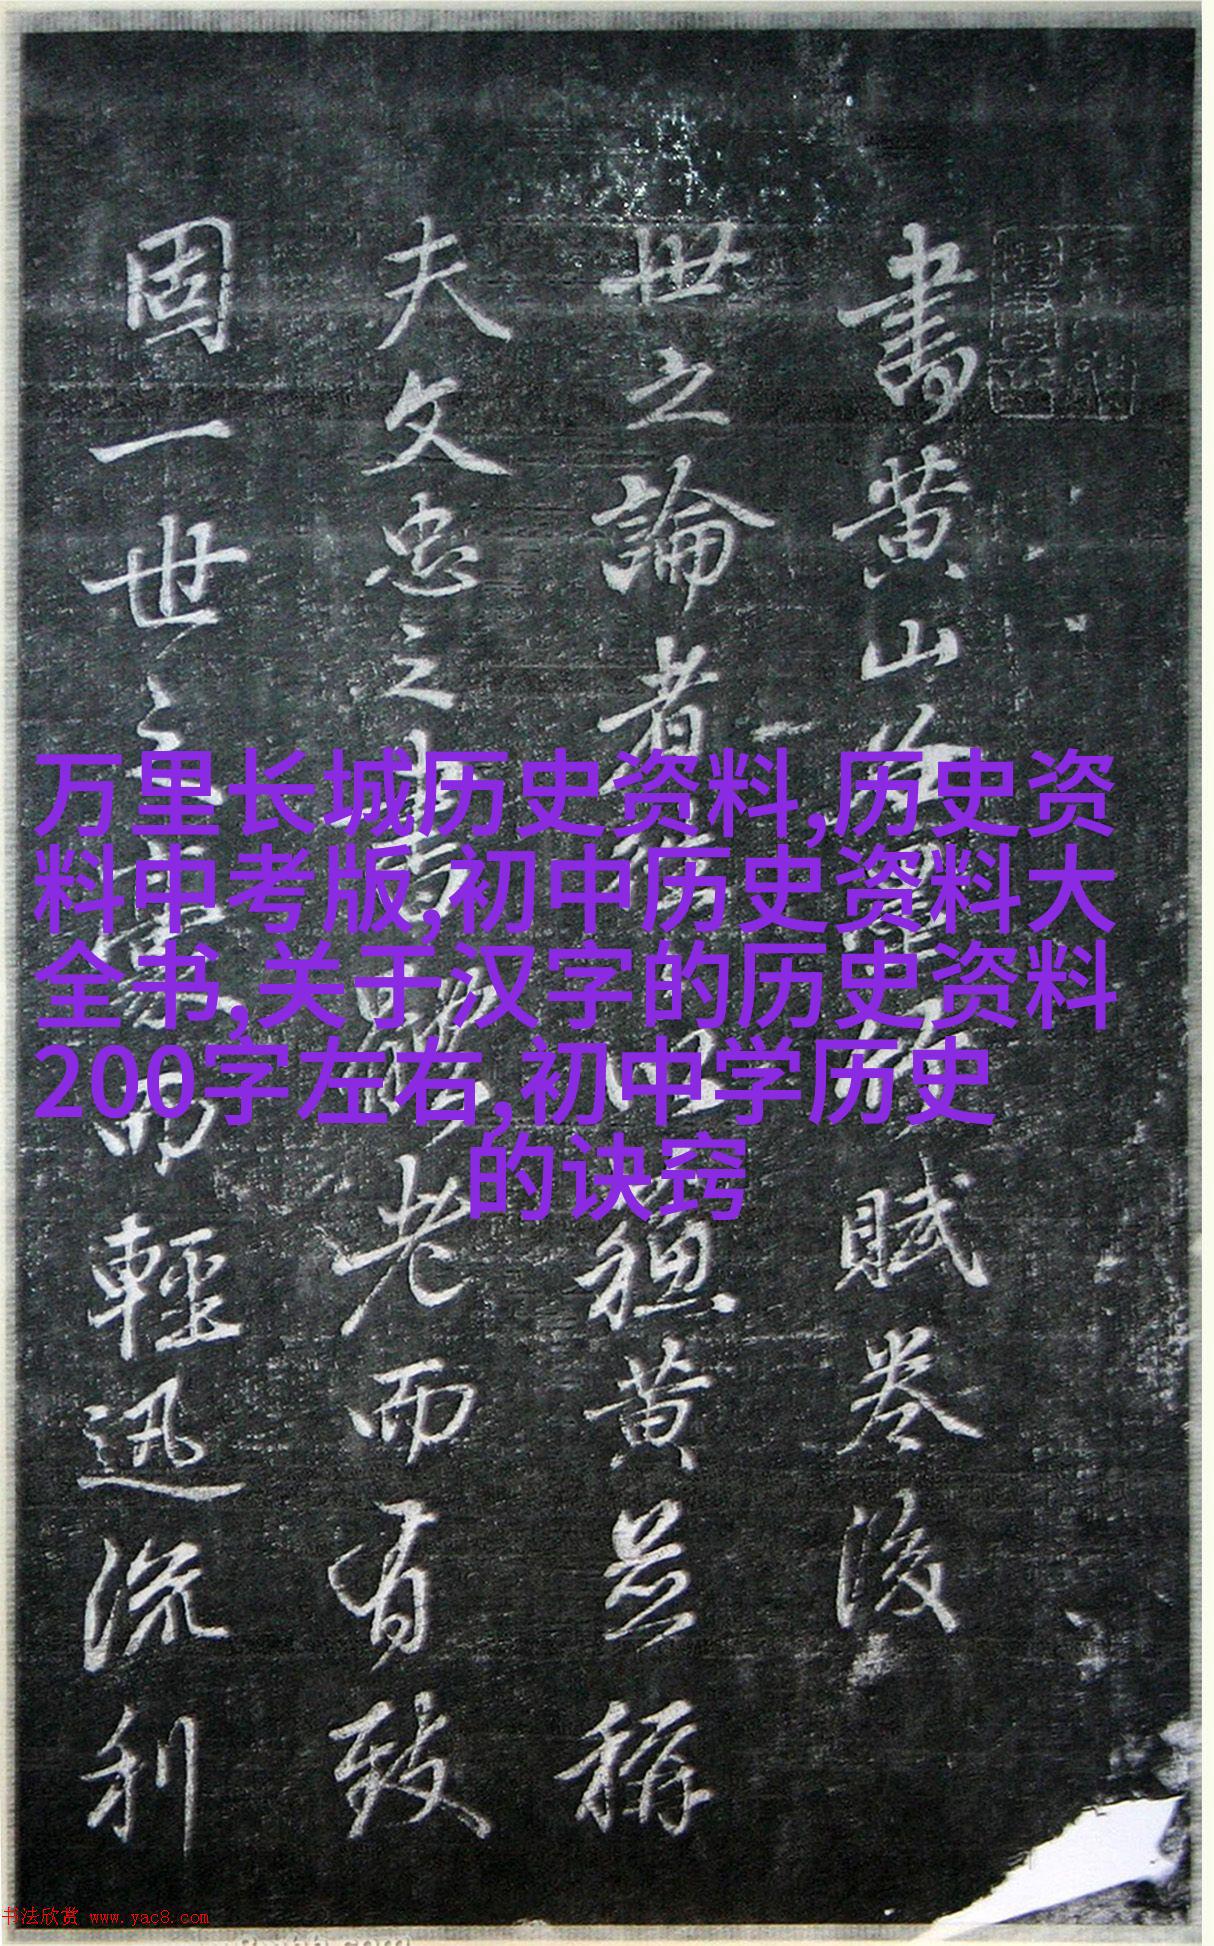 書黄山谷賦卷後
世之論者黄並稱
夫文忠之書老而有致
固一世之豪而輕迅流利
万里长城历史资料,历史资
料中考版,初中历史资料大
全书,关于汉字的历史资料
200字左右,初中学历史
的诀窍
书法欣赏 www.yac8.com